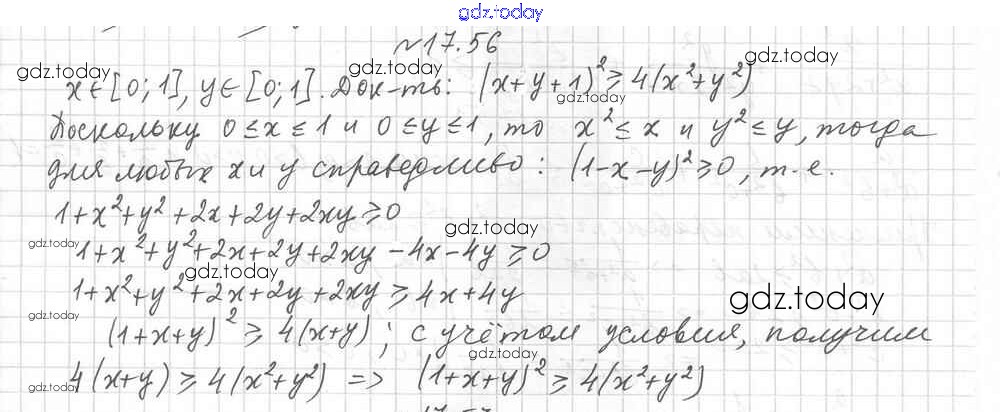 gdz.today
№17.56
gdz.today gdz.today gdz.today
x∈[0;1], y∈[0;1]. Док-ть: (x+y+1)²≥4(x²+y²)
gdz.today
Поскольку 0≤x≤1 и 0≤y≤1, то x²≤x и y²≤y, тогда
для любых x и y справедливо: (1-x-y)²≥0, т.е.
1+x²+y²+2x+2y+2xy≥0
gdz.today gdz.today
1+x²+y²+2x+2y+2xy-4x-4y≥0
gdz.today
1+x²+y²+2x+2y+2xy≥4x+4y
gdz.today
gdz.today
(1+x+y)²≥4(x+y); с учётом условия, получим
gdz.today
4(x+y)≥4(x²+y²) => (1+x+y)²≥4(x²+y²)
gdz.today